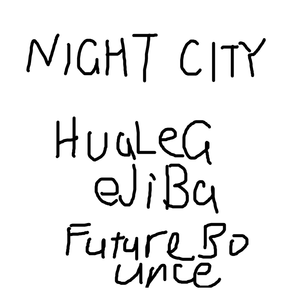 NIGHT CITY
HuaLeG
eJiBa
FutureBo
unce